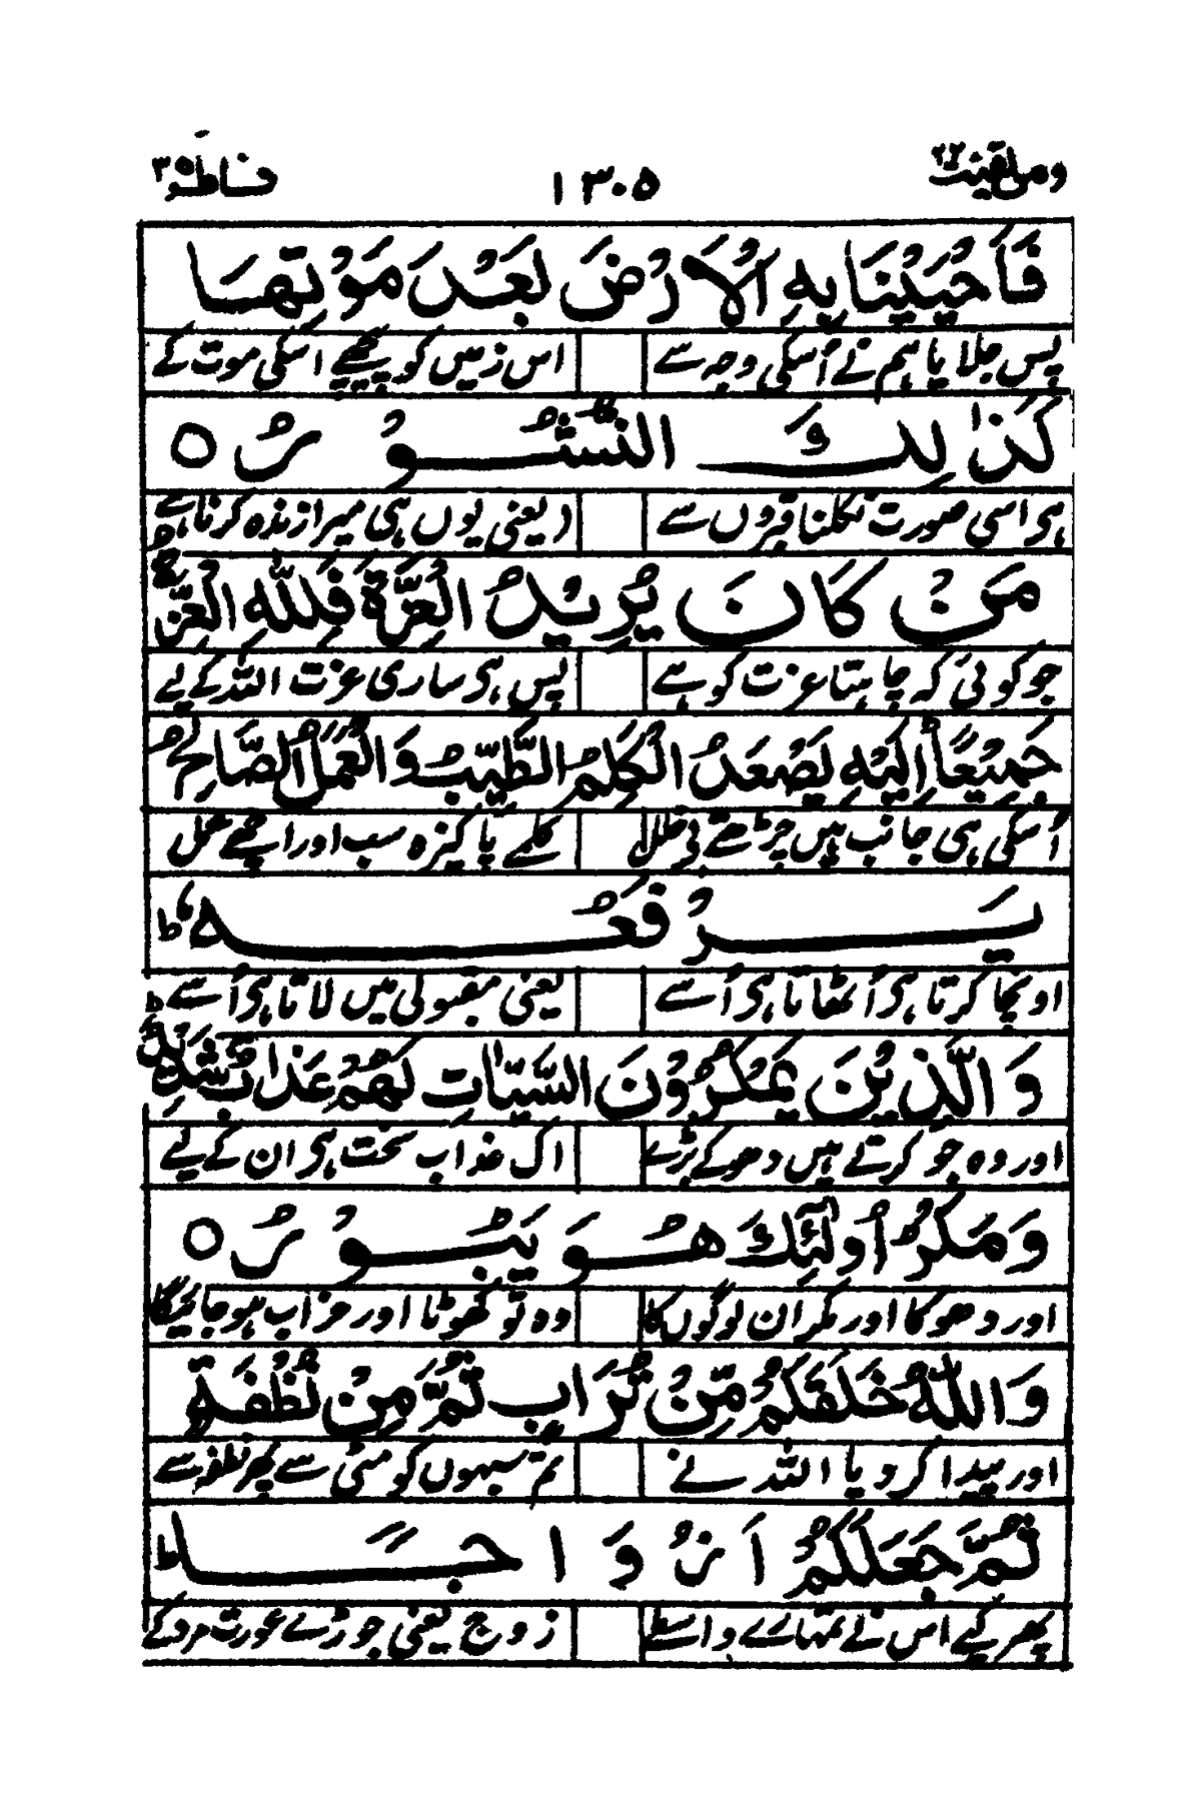 ومن یقنت ۲۲ ۱۳۰۵ فاطر ۳۵
فَاَحْیَیْنَا بِهِ الْاَرْضَ بَعْدَ مَوْتِهَا
پس جلا یا ہم نے اُسکی وجہ سے اس زمیں کو پیچھے اسکی موت کے
كَذٰلِكَ النُّشُوْرُ ۝
ہی اسی صورت نکلنا قبروں سے (یعنی یوں ہی میرا زندہ کرنا ہے
مَنْ كَانَ یُرِیْدُ الْعِزَّةَ فَلِلّٰهِ الْعِزَّةُ
جو کوئی کہ چاہتا عزت کو ہے پس ہی ساری عزت اللہ کے لیے
جَمِیْعًا ؕ اِلَیْهِ یَصْعَدُ الْكَلِمُ الطَّیِّبُ وَ الْعَمَلُ الصَّالِحُ
اُسکی ہی جانب ہیں چڑھتے کلمے پاکیزہ سب اور اچھے عمل
یَرْفَعُهٗ ؕ
اونچا کرتا ہی اُٹھاتا ہی اُسے یعنی مقبولی میں لاتا ہی اُسے
وَ الَّذِیْنَ یَمْكُرُوْنَ السَّیِّاٰتِ لَهُمْ عَذَابٌ شَدِیْدٌ ؕ
اور وہ جو کرتے ہیں دھوکے بڑے اک عذاب سخت ہی ان کے لیے
وَ مَكْرُ اُولٰٓئِكَ هُوَ یَبُوْرُ ۝
اور دھوکا اور مکر ان لوگوں کا وہ تو کھوٹا اور خراب ہو جائیگا
وَ اللّٰهُ خَلَقَكُمْ مِّنْ تُرَابٍ ثُمَّ مِنْ نُّطْفَةٍ
اور پیدا کر دیا اللہ نے تم سبھوں کو مٹی سے پھر نطفہ سے
ثُمَّ جَعَلَكُمْ اَزْوَاجًا ؕ
پھر کیے اس نے تمہارے واسطے زوج یعنی جوڑے عورت مرد کے